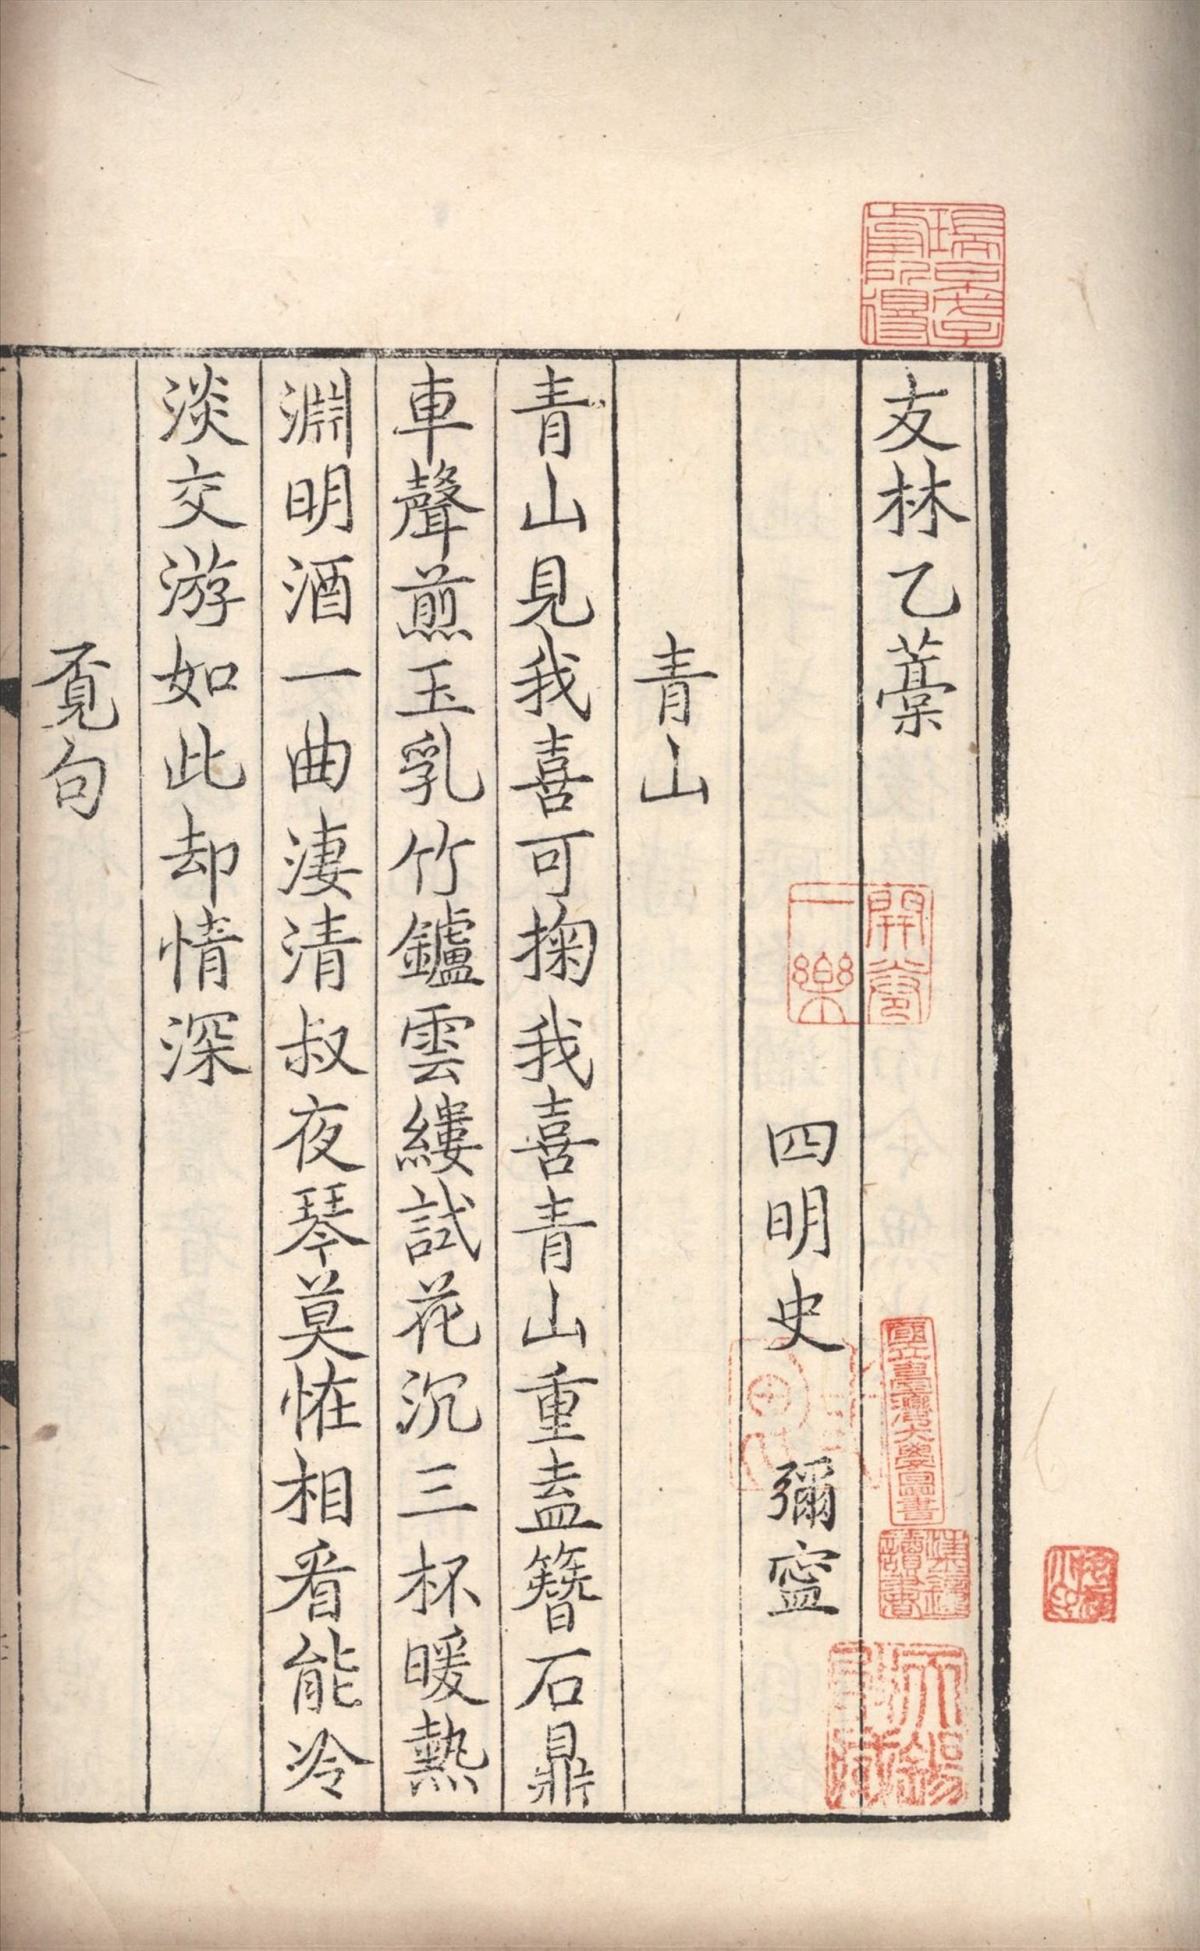 友林乙藁
四明史　彌寧
青山
青山見我喜可掬我喜青山重盍簪石鼎
車聲煎玉乳竹鑪雲縷試花沉三杯暖熱
淵明酒一曲淒清叔夜琴莫恠相看能冷
淡交游如此却情深
覔句
開卷一樂
國立臺灣大學圖書